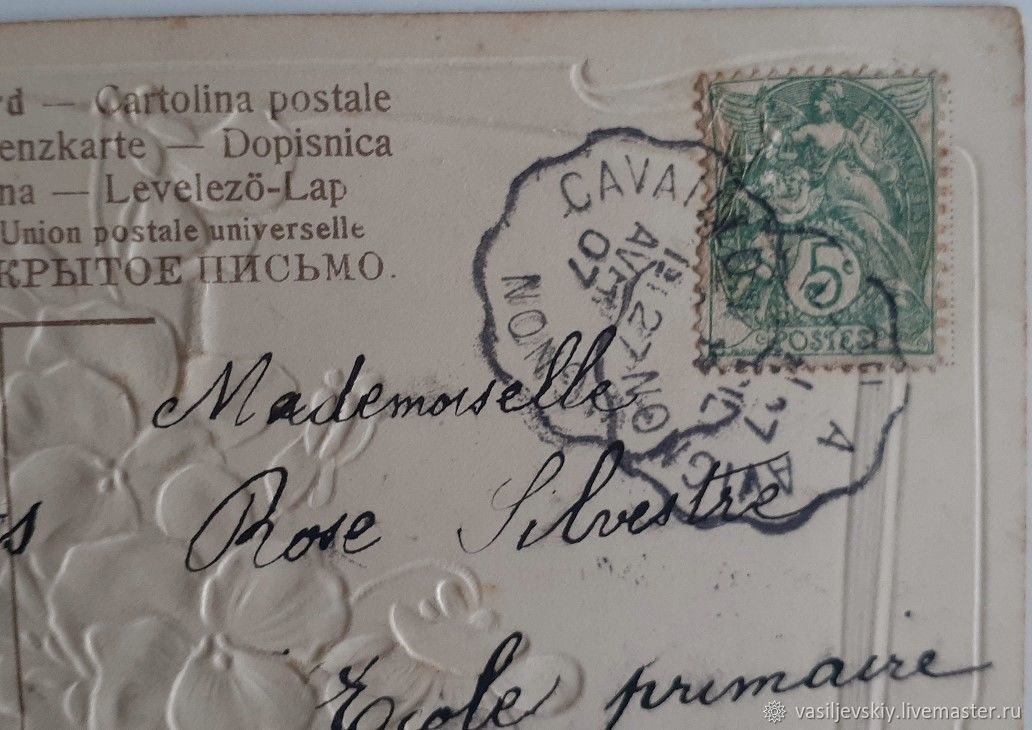 rd — Cartolina postale
enzkarte — Dopisnica
na — Levelező-Lap
Union postale universelle
КРЫТОЕ ПИСЬМО.
5c
POSTES
07
Mademoiselle
Rose Silvestre
Ecole primaire
vasiljevskiy.livemaster.ru